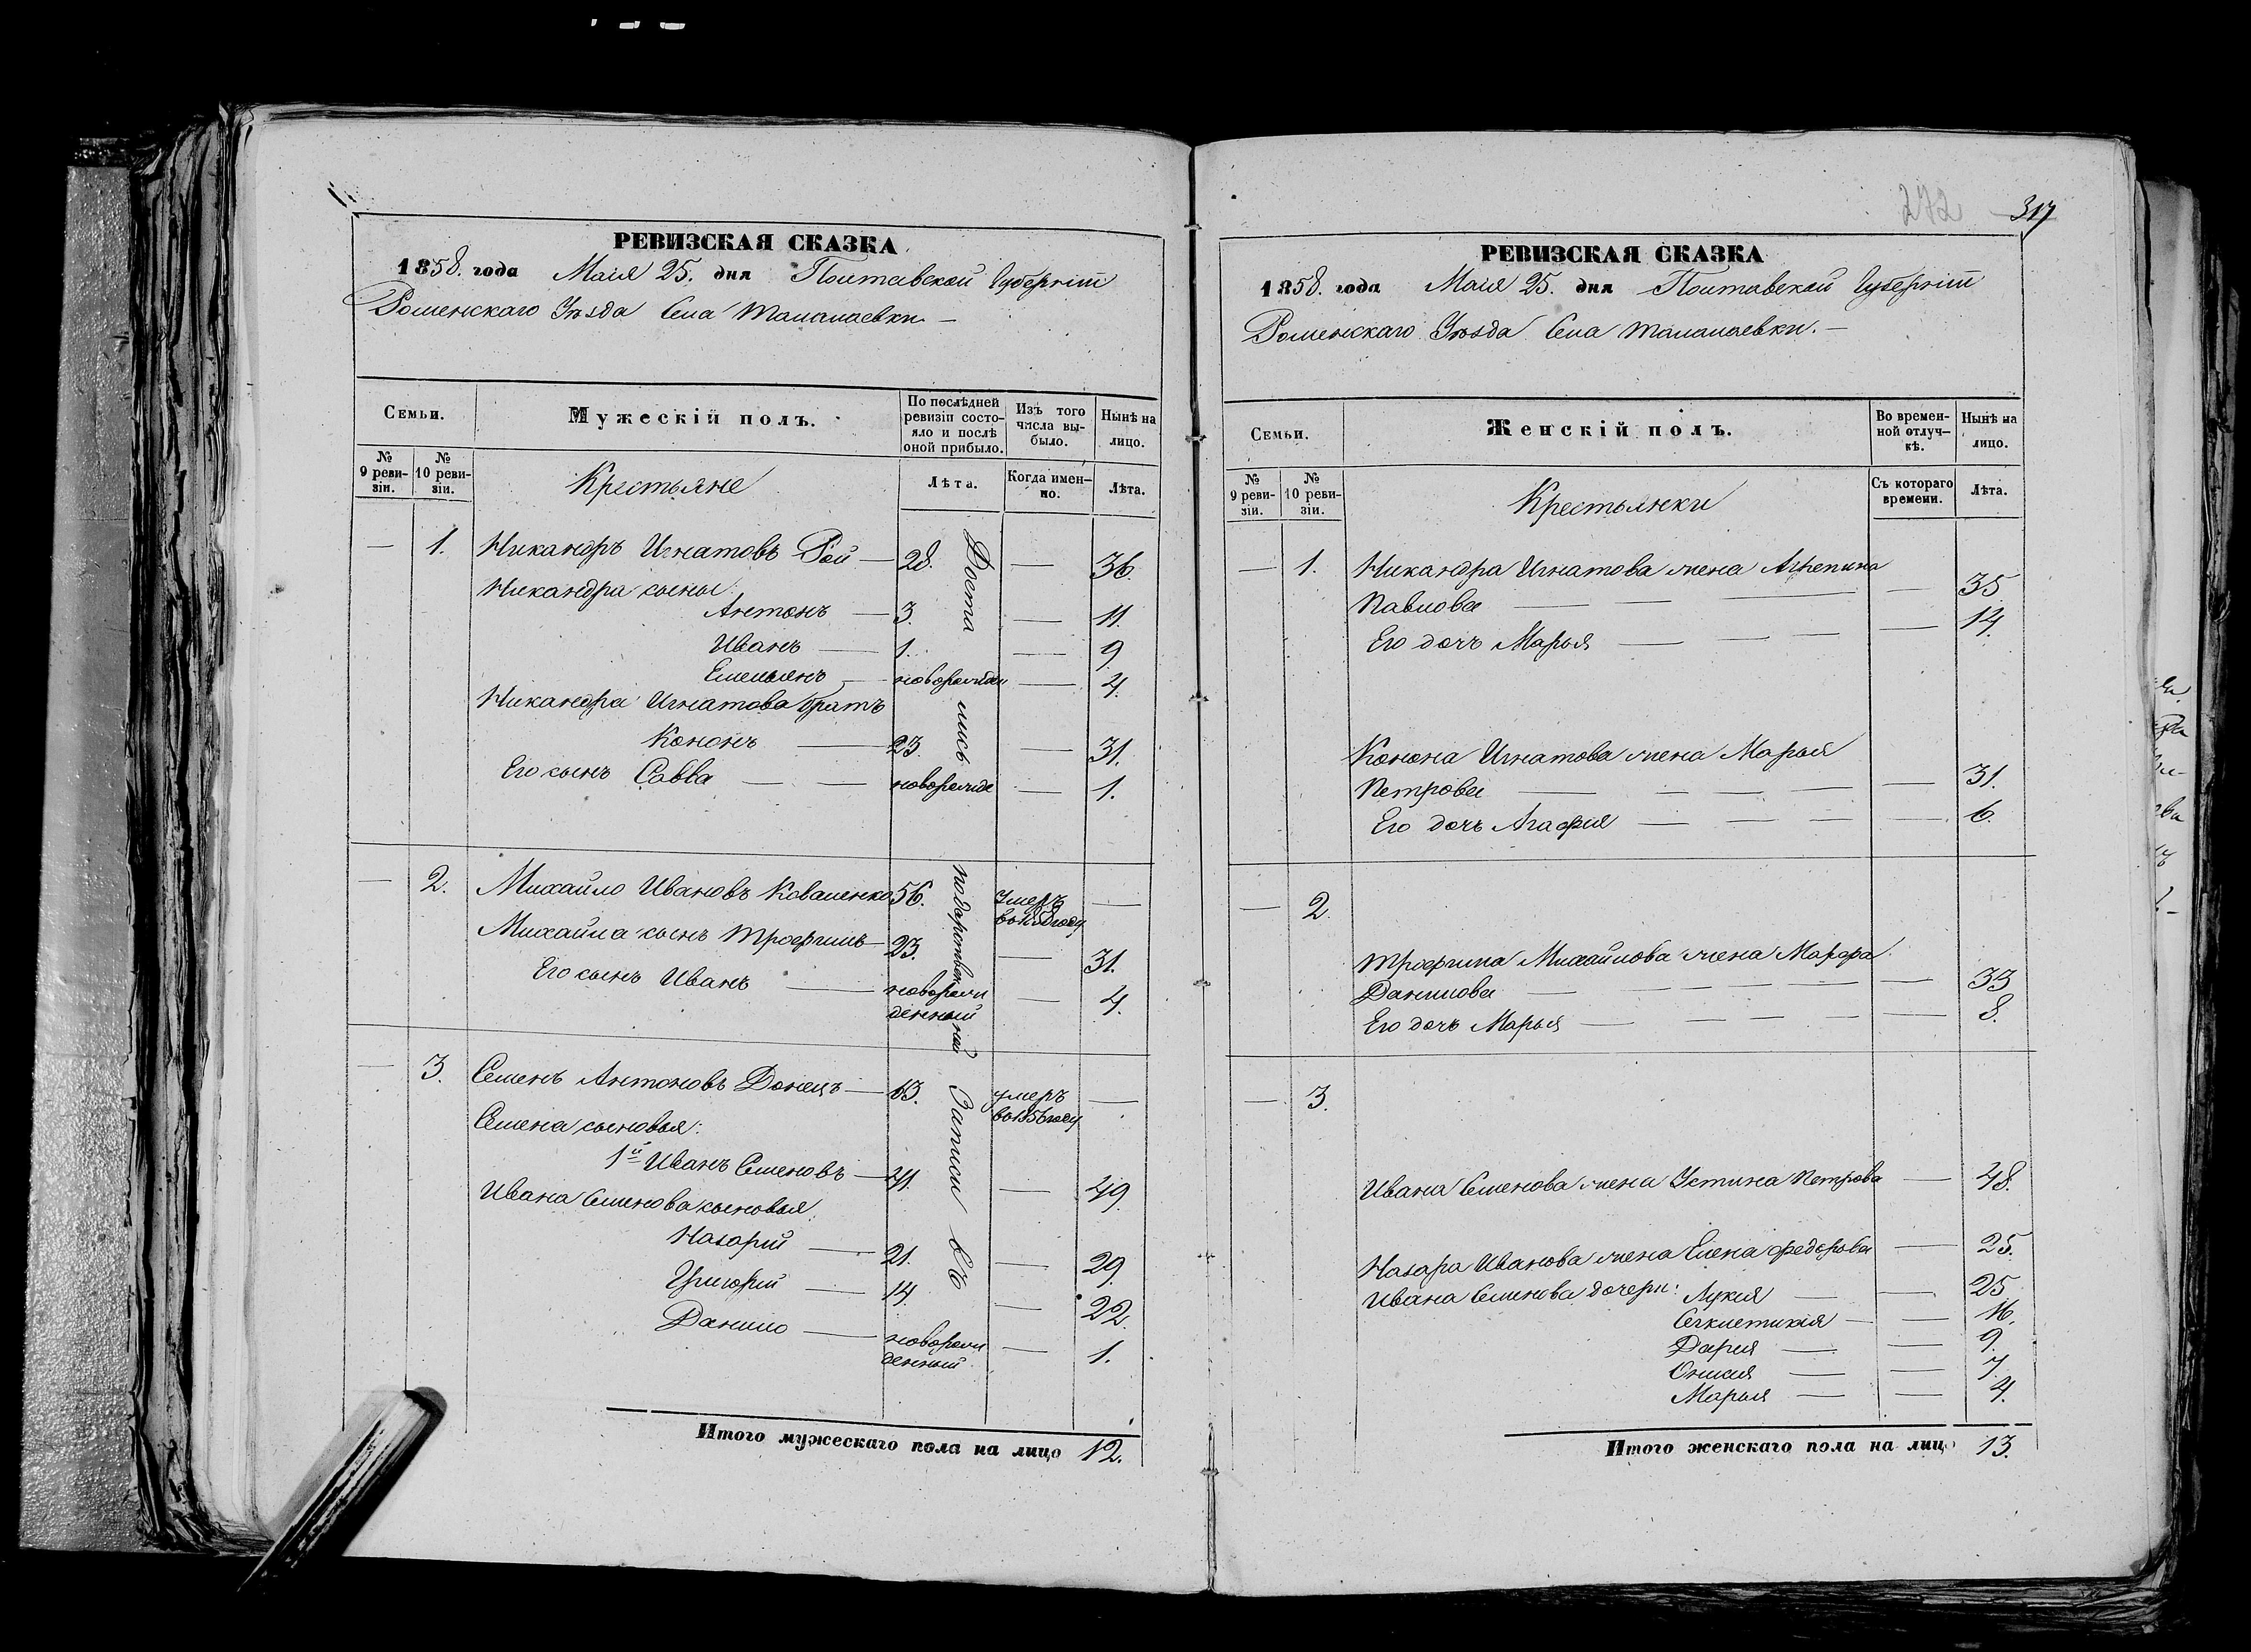 РЕВИЗСКАЯ СКАЗКА
1858. года Маія 25. дня Полтавской Губерніи
Роменскаго Уѣзда Села Талалаевки. —
Семьи.
Мужескій полъ.
По послѣдней ревизіи состояло и послѣ оной прибыло.
Изъ того числа выбыло.
Нынѣ на лицо.
№ 9 ревизіи.
№ 10 ревизіи.
Крестьяне
Лѣта.
Когда именно.
Лѣта.
— 1. Никандръ Игнатовъ Рой — 28. — 36.
Никандра сыны
Антонъ — 3. — 11.
Иванъ — 1. — 9.
Емельянъ — новорожден — 4.
Никандра Игнатова братъ
Кононъ — 23. — 31.
Его сынъ Савва — — новорожде — 1.
— 2. Михайло Ивановъ Коваленко 56. Умеръ —
Михайла сынъ Трофимъ — 23. — 31.
Его сынъ Иванъ — новорож — 4.
денный
— 3. Семенъ Антоновъ Донецъ — 63. умеръ —
во 1856 году
Семена сыновья:
1й Иванъ Семеновъ — 41. — 49.
Ивана Семенова сыновья:
Назарій — 21. — 29.
Григорій — 14. — 22.
Данило — новорож — 1.
денный
Доста лись по дарственной Записи въ
Итого мужескаго пола на лицо 12.
272 317
РЕВИЗСКАЯ СКАЗКА
1858. года Маія 25. дня Полтавской Губерніи
Роменскаго Уѣзда Села Талалаевки. —
Семьи.
Женскій полъ.
Во временной отлучкѣ.
Нынѣ на лицо.
№ 9 ревизіи.
№ 10 ревизіи.
Крестьянки
Съ котораго времени.
Лѣта.
— 1. Никандра Игнатова жена Агрепина
Павлова — — — — 35
Его дочь Марья — — — — 14.
Конона Игнатова жена Марья
Петрова — — — — — 31.
Его дочь Агафия — — — — 6.
— 2.
Трофима Михайлова жена Марфа
Данилова — — — — — 33
Его дочь Марья — — — — 8.
— 3.
Ивана Семенова жена Устина Петрова — 48.
Назара Иванова жена Елена Федорова — 25.
Ивана Семенова дочери: Лукия — — 25
— — 16.
Дария — — 9.
— — 7.
Марья — — 4.
Итого женскаго пола на лицо 13.